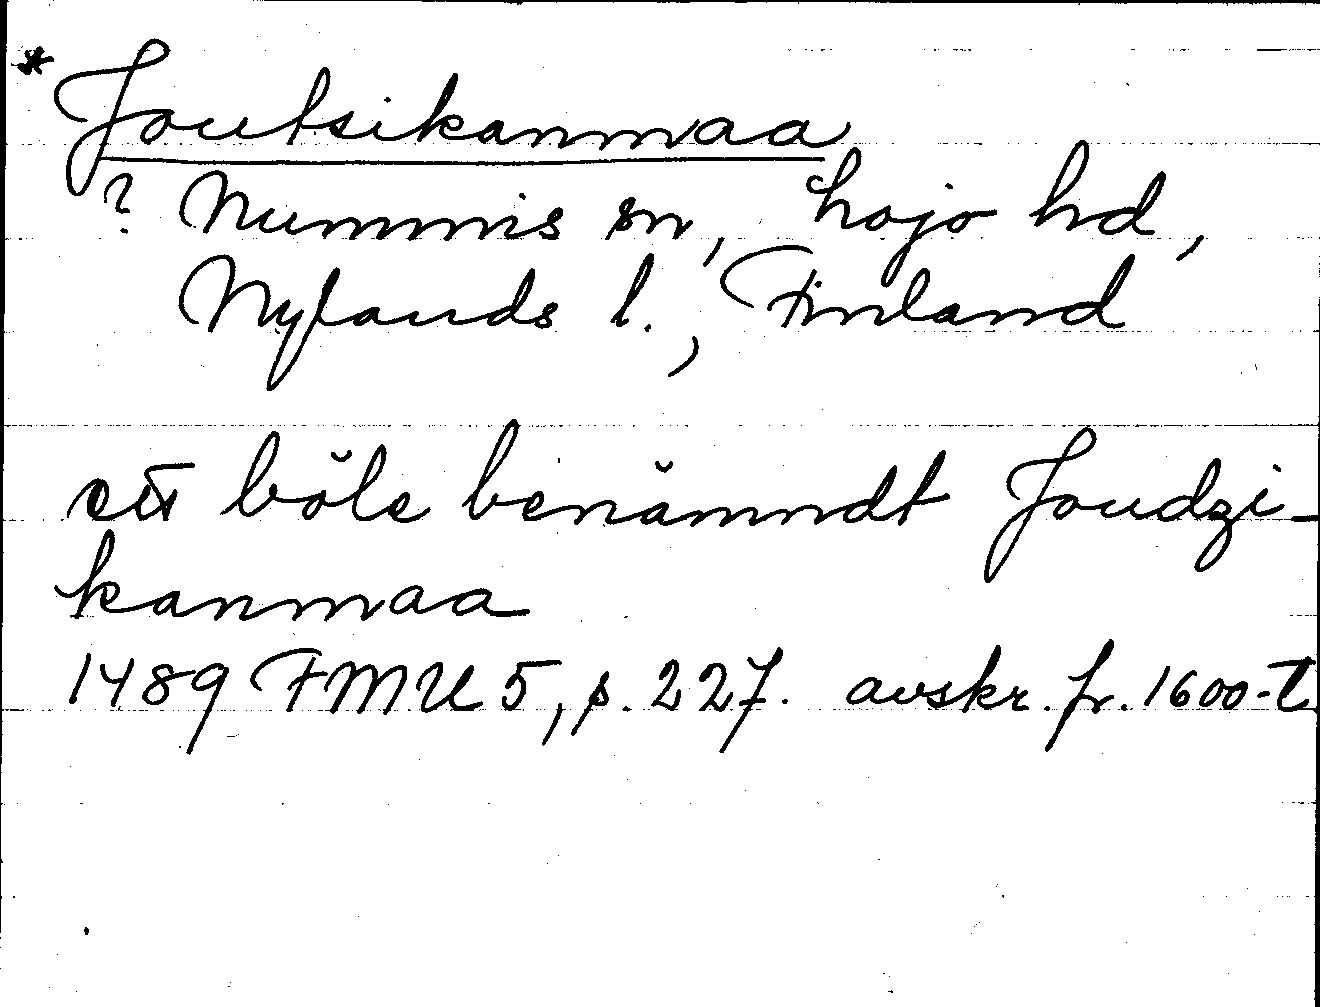 * Joutsikanmaa
? Nummis sn, Lojo hd,
Nylands l., Finland
ett böle benämndt Joudzi-
kanmaa
1489 FMU 5, s. 227. avskr. fr. 1600-t